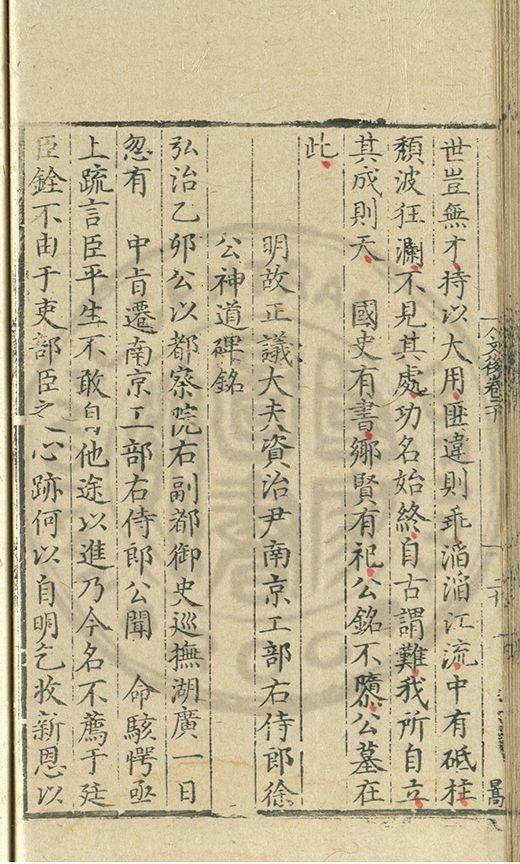 世豈無才持以大用匪違則乖滔滔江流中有砥柱
頹波狂瀾不見其處功名始終自古謂難我所自立
其成則天　國史有書鄉賢有祀公銘不隳公墓在
此
明故正議大夫資治尹南京工部右侍郎徐
公神道碑銘
弘治乙卯公以都察院右副都御史巡撫湖廣一日
忽有　中旨遷南京工部右侍郎公聞　命駭愕亟
上疏言臣平生不敢自他途以進乃今名不薦于廷
臣銓不由于吏部臣之心跡何以自明乞收新恩以